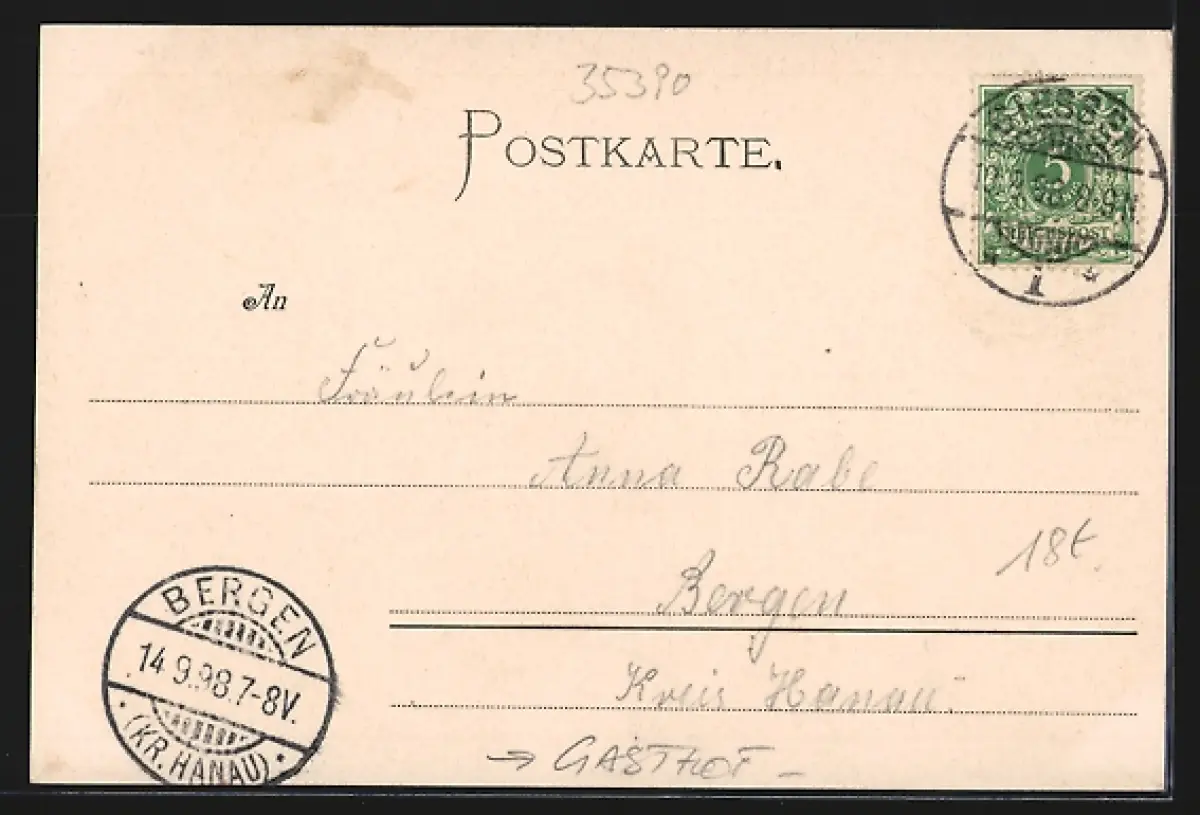 35390
POSTKARTE.
GIESSEN
5
8-9N
REICHSPOST
1
An
Fräulein
Anna Rabe
18t.
Bergen
Kreis Hanau.
BERGEN
14.9.98.7-8V.
(KR. HANAU)
→ GASTHOF -